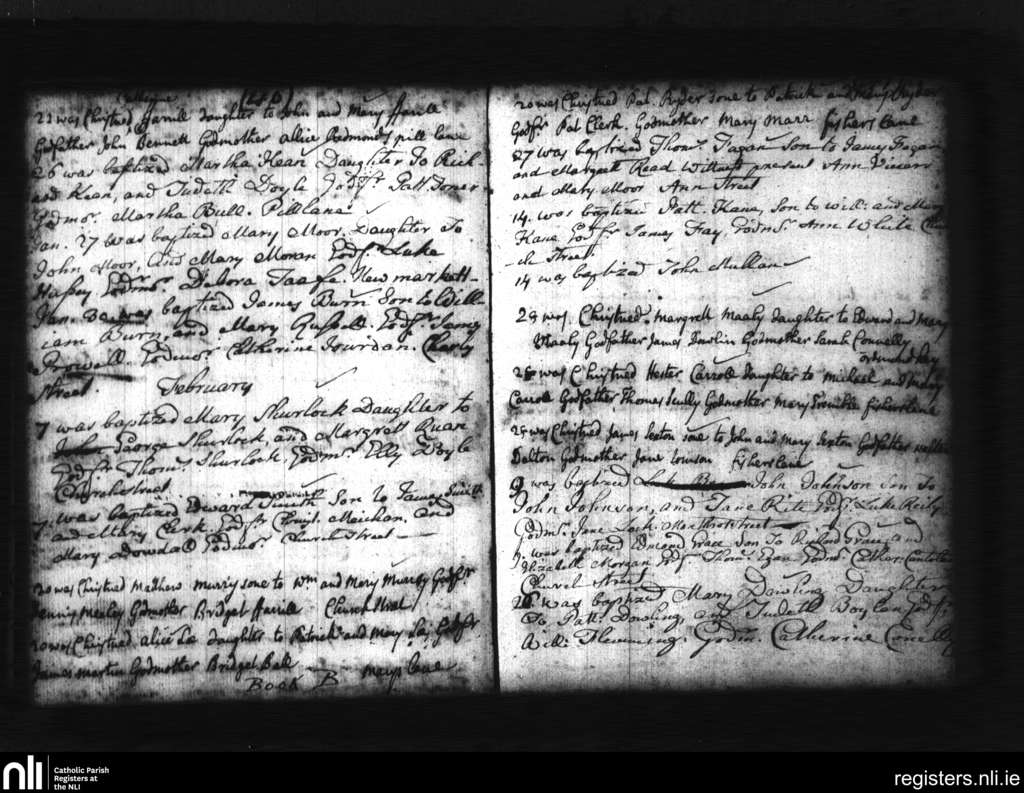 Catherine
22 was Christned ffarrill daughter to John and Mary ffarrill
Godfather John Bennett Godmother allice Redmond pill lane
26 was baptized Martha Kean Daughter To Rich-
ard Kean, and Judath Doyle Godfr. Patt. Toner
Godmor. Martha Bull. Pill lane
Jan. 27 was baptized Mary Moor. Daughter To
John Moor, and Mary Moran Godfr. Luke
Hassey Godmor. Debora Taaffe. New markett-
Jan. was baptized James Burn Son to Will-
iam Burn, and Mary Russell. Godfr. Jams
Dowdall Godmor. Catherine Jourdan. Charls
Street.
February
7 was baptized Mary Shurlock Daughter to
George Shurlock, and Margrett Ruan
Godfr. Thoms. Shurlock Godmr. Elly Doyle
Church street
7. was baptized Edward Smith Son to James Smith
and Mary Clerk Godfr. Christ. Meichan. and
Mary Dowdall Godmor. Church Street
20 was Christned Mathew murry sone to Wm and Mary Murry Godfr
Dennis Meeley Godmother Bridget ffarrill Church street
20 was Christned alice daughter to Patrick and Mary Godfr.
James martin Godmother Bridget Ball
Book B Marys lane
20 was Christned Pat. Ryder sone to Patrick and Mary Ryder
Godfr Pat Clerk. Godmother Mary Marr fishers lane
27 was baptized Thoms. Fagan Son to James Fagan
and Margrett Read Witness present Ann Vicars
and Mary Moor Ann Street
14. was baptized Patt. Kane, Son to will: and Mary
Kane Godfr James Fay, Godmr. Ann White Chur
ch Street.
14 was baptized John Mullan
24 was. Christned. Margrett Mealy daughter to Edward and Mary
Mealy Godfather James Dowlin Godmother Sarah Connelly
ormond key
25 was Christned Hester Carroll daughter to Michael and Mary
Carroll Godfather Thomas Scully Godmother Mary fishers lane
25 was Christned James Sexton sone to John and Mary Sexton Godfather
Dalton Godmother Jane fishers lane
9 was baptized John Johnson son to
John Johnson, and Jane Godfr. Luke Reily
Godmr. Jane Lock. street
9. was baptized Edmond Grace Son To Richard Grace, and
Elizabeth Morgan Godfr. Thoms Egan Godmr. Cather.
Church street
26 was baptized Mary Dowling Daughter
To Patt: Dowling, and Judeth Boylan Godfr
Will: Flemming. Godm. Catherine Conelly
nli
Catholic Parish
Registers at
the NLI
registers.nli.ie